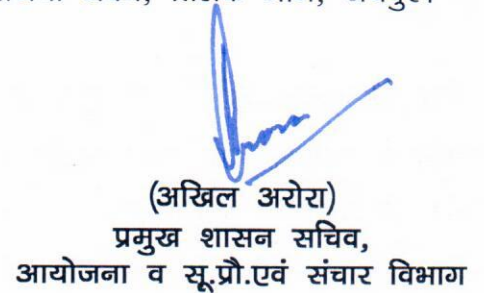 (अखिल अरोरा)
प्रमुख शासन सचिव,
आयोजना व सू.प्रौ.एवं संचार विभाग